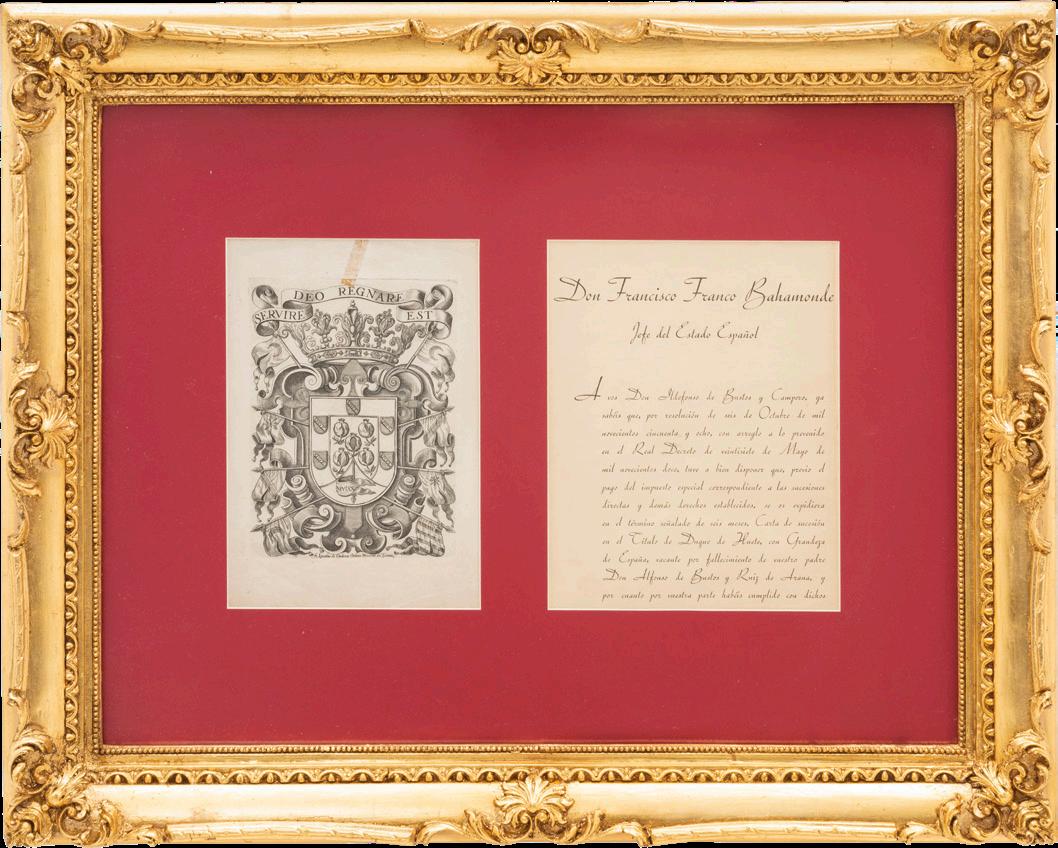 DEO REGNARE
SERVIRE EST
Don Francisco Franco Bahamonde
Jefe del Estado Español
A vos Don Ildefonso de Bustos y Campero, ya
sabéis que, por resolución de seis de Octubre de mil
novecientos cincuenta y ocho, con arreglo a lo prevenido
en el Real Decreto de veintisiete de Mayo de
mil novecientos doce, tuve a bien disponer que, previo el
pago del impuesto especial correspondiente a las sucesiones
directas y demás derechos establecidos, se os expidiera
en el término señalado de seis meses, Carta de sucesión
en el Título de Duque de Huete, con Grandeza
de España, vacante por fallecimiento de vuestro padre
Don Alfonso de Bustos y Ruiz de Arana, y
por cuanto por vuestra parte habéis cumplido con dichos